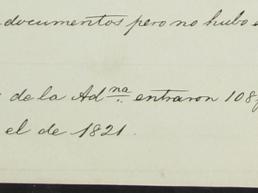 documentos pero no hubo
de la Adna. entraron 108
el de 1821.